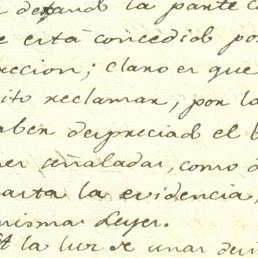 dexand la parte
e está concedid por
reccion; claro es que
ito reclamar, por la
aber despreciad el
er señaladas, como
arta la evidencia,
mismas Leyes.
la luz de unas